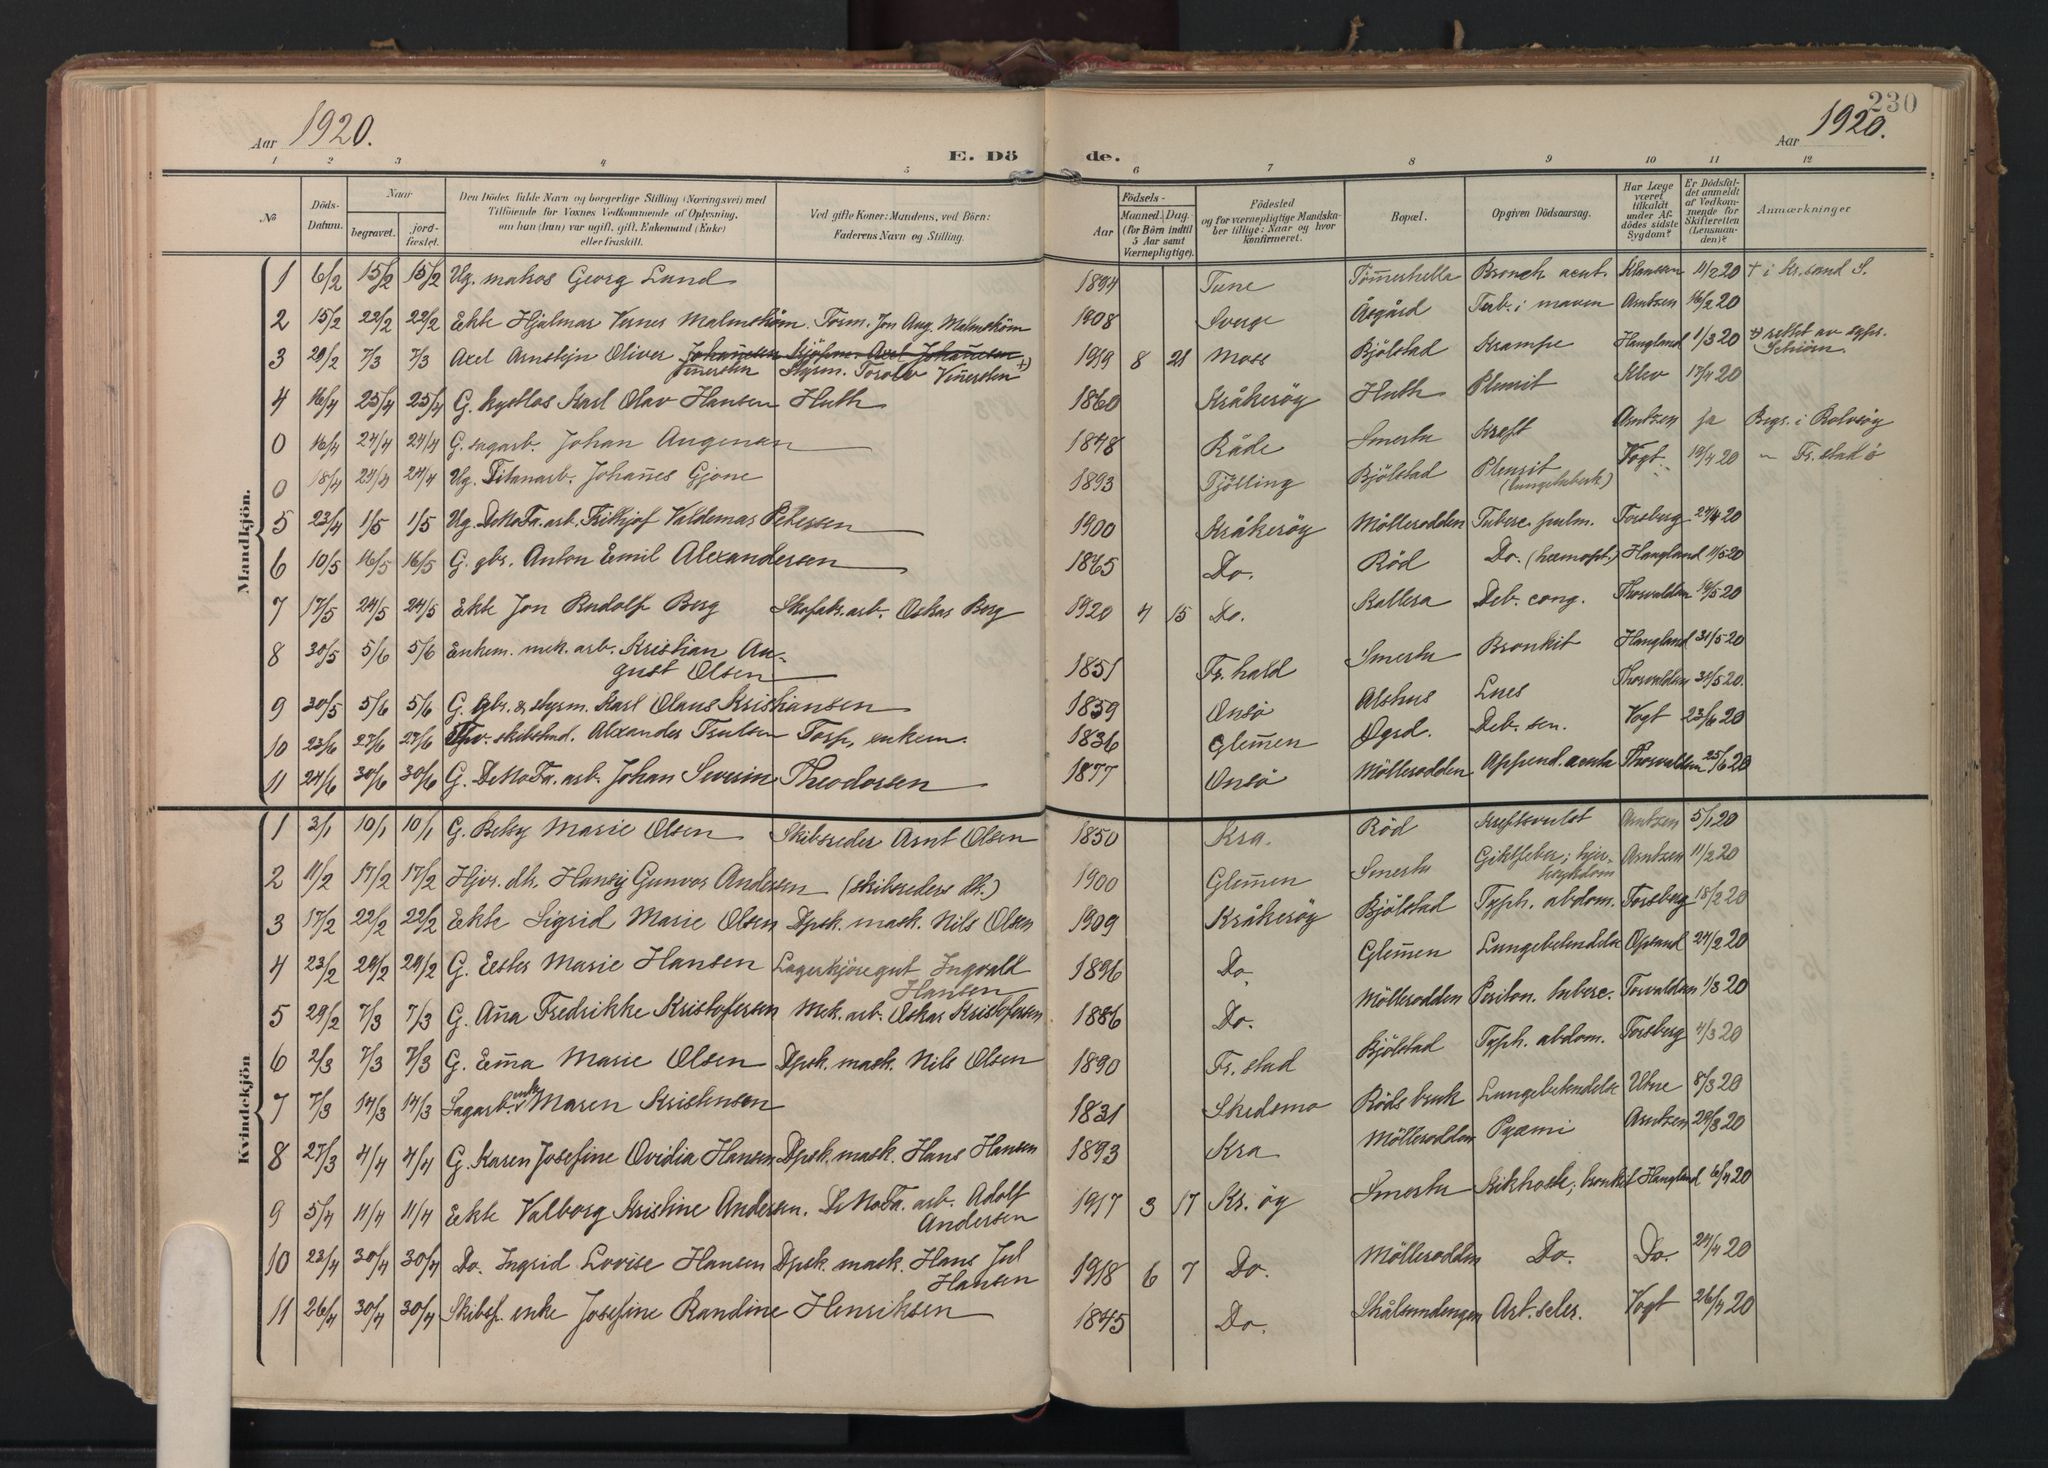 230
Aar 1920.
Aar 1920.
E. Dö de.
1 2 3 4 5 6 7 8 9 10 11 12
No
Döds-Datum.
Naar
begravet.
jord-fæstet.
Den Dödes fulde Navn og borgerlige Stilling (Næringsvei) med
Tilföiende for Voxnes Vedkommende af Oplysning,
om han (hun) var ugift, gift, Enkemand (Enke)
eller fraskilt.
Ved gifte Koner: Mandens, ved Börn:
Faderens Navn og Stilling.
Födsels-
Aar
Maaned. Dag.
(for Börn indtil 5 Aar samt Værnepligtige).
Födested
og for værnepligtige Mandska-
ber tillige: Naar og hvor
konfirmeret.
Bopæl.
Opgiven Dödsaarsag.
Har Læge været tilkaldt under Afdödes sidste Sygdom?
Er Dödsfaldet anmeldt af Vedkommende for Skifteretten (Lensmanden)?
Anmærkninger
Mandkjön.
1 6/2 15/2 15/2 Ug. matros Georg Lund 1894 Tune Tömmerhella Bronch. acut. Klaussen 11/2 20 † i Kr.sand S.
2 15/2 22/2 22/2 Ekte Hjalmar Verner Malmström. Form. Jon Aug. Malmström 1908 Sverge Åsgård Tub. i maven Arntzen 16/2 20
3 29/2 7/3 7/3 Axel Arnstejn Oliver Johannesen Sjöfm. Axel Johannesen 1919 8 21 Moss Bjölstad Krampe Haugland 1/3 20 +) rettet av sogpr.
Styrm. Torolv +) Schiörn.
4 16/4 25/4 25/4 G. kystlos Karl Olav Hansen Huth 1860 Kråkeröy Huth Plevrit Klev 17/4 20
0 16/4 24/4 24/4 G. sagarb. Johan Augenan 1848 Råde Smertu Kreft Arntzen ja Begr. i Rolvsöy
0 18/4 24/4 24/4 Ug. Titanarb. Johannes Gjone 1893 Tjölling Bjölstad Plevrit Vogt 19/4 20 — Fr.stad ö
5 23/4 1/5 1/5 Ug. DeNoFa. arb. Fritjof Valdemar Petersen 1900 Kråkeröy Möllerodden Tuberc. pulm. Forsberg 27/4 20
6 10/5 16/5 16/5 G. gbr. Anton Emil Alexandersen 1865 Do. Röd Do. (hæmopt.) Haugland 11/5 20
7 17/5 24/5 24/5 Ekte Jon Rudolf Berg Skofabr. arb. Oskar Berg 1920 4 15 Do. Kallera Deb. cong. Thorvaldsen 19/5 20
8 30/5 5/6 5/6 Enkem. mek. arb. Kristian Au-
gust Olsen 1851 Fr. hald Smertu Bronkit Haugland 31/5 20
9 30/5 5/6 5/6 G. gbr. & styrm. Karl Olaus Kristiansen 1859 Onsö Alshus Lues Thorvaldsen 31/5 20.
10 23/6 27/6 27/6 skibstmd. Alexander Trulsen Torp, enkem. 1836 Glemmen Ögrd. Deb. sen. Vogt 23/6 20
11 24/6 30/6 30/6 G. DeNoFa. arb. Johan Severin Theodorsen 1877 Onsö Möllerodden Append. acuta Thorvaldsen 25/6 20
Kvindekjön
1 3/1 10/1 10/1 G. Betsy Marie Olsen Skibsreder Arnt Olsen 1850 Kra. Röd Kreftsvulst Arntzen 5/1 20
2 11/2 17/2 17/2 Hjv. dtr. Hansy Gunvor Andersen (skibsreders dtr.) 1900 Glemmen Smertu Giktfeber; hjer-
tesykdom Arntzen 11/2 20
3 17/2 22/2 22/2 Ekte Sigrid Marie Olsen Dpsk. mask. Nils Olsen 1909 Kråkeröy Bjölstad Typh. abdom. Forsberg 18/2 20
4 23/2 29/2 29/2 G. Ester Marie Hansen Lagerkjöregut Ingvald
Hansen 1896 Do. Glemmen Lungebetendelse Opsand 24/2 20
5 29/2 7/3 7/3 G. Anna Fredrikke Kristofersen Mek. arb. Oskar Kristofersen 1886 Do. Möllerodden Periton. tuberc. Torvaldsen 1/3 20
6 2/3 7/3 7/3 G. Emma Marie Olsen Dpsk. mask. Nils Olsen 1890 Fr. stad Bjölstad Typh. abdom. Forsberg 4/3 20
7 7/3 14/3 14/3 Sagarb. enke Maren Kristensen 1831 Skedsmo Röds bruk Lungebetendelse Utne 8/3 20
8 27/3 4/4 4/4 G. Karen Josefine Ovidia Hansen Dpsk. mask. Hans Hansen 1893 Kra Möllerodden Pyæmi Arntzen 29/3 20
9 5/4 11/4 11/4 Ekte Valborg Kristine Andersen. De NoFa. arb. Adolf
Andersen 1917 3 17 Kr. öy Smertu Kikhoste; bronkit Haugland 6/4 20
10 23/4 30/4 30/4 Do. Ingrid Lovise Hansen Dpsk. mask. Hans Jul
Hansen 1918 6 7 Do. Möllerodden Do. Do. 24/4 20
11 26/4 30/4 30/4 Skibsf. enke Josefine Randine Henriksen 1845 Do. Skålsundengen Art. scler. Vogt 26/4 20